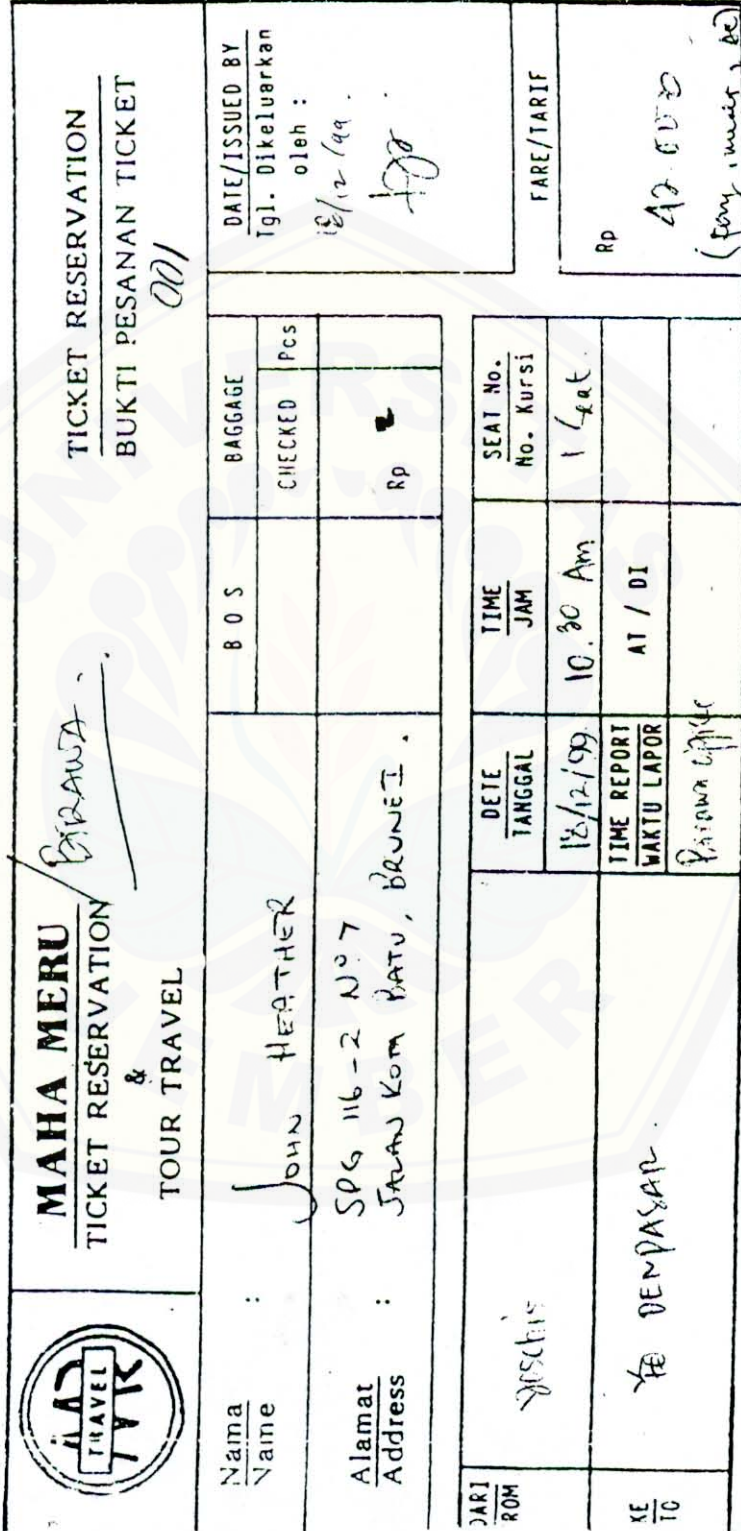 TRAVEL
MAHA MERU
TICKET RESERVATION
&
TOUR TRAVEL
BIRAWA.
TICKET RESERVATION
BUKTI PESANAN TICKET
001
Nama
Name :
JOHN HEATHER
Alamat
Address :
SPG 116-2 No 7
JALAN KOTA BATU, BRUNEI.
B O S
BAGGAGE
CHECKED Pcs
Rp
DATE/ISSUED BY
Tgl. Dikeluarkan
oleh :
18/12/99.
DARI
FROM
KE
TO
DENPASAR.
DETE
TANGGAL
TIME
JAM
SEAT No.
No. Kursi
18/12/99
10.30 Am
1
TIME REPORT
WAKTU LAPOR
AT / DI
FARE/TARIF
Rp
UNIVERSITAS
JEMBER